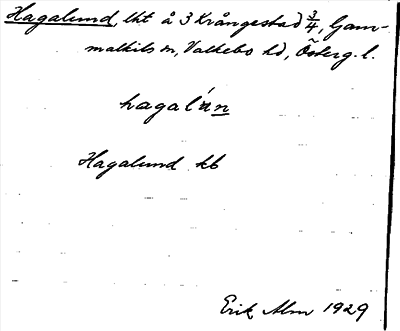 Hagalund, lht å 3 Krångestad 3/4, Gam-
malkils sn, Valkebo hd, Österg. l.
hagalún
Hagalund kb
Erik Alm 1929